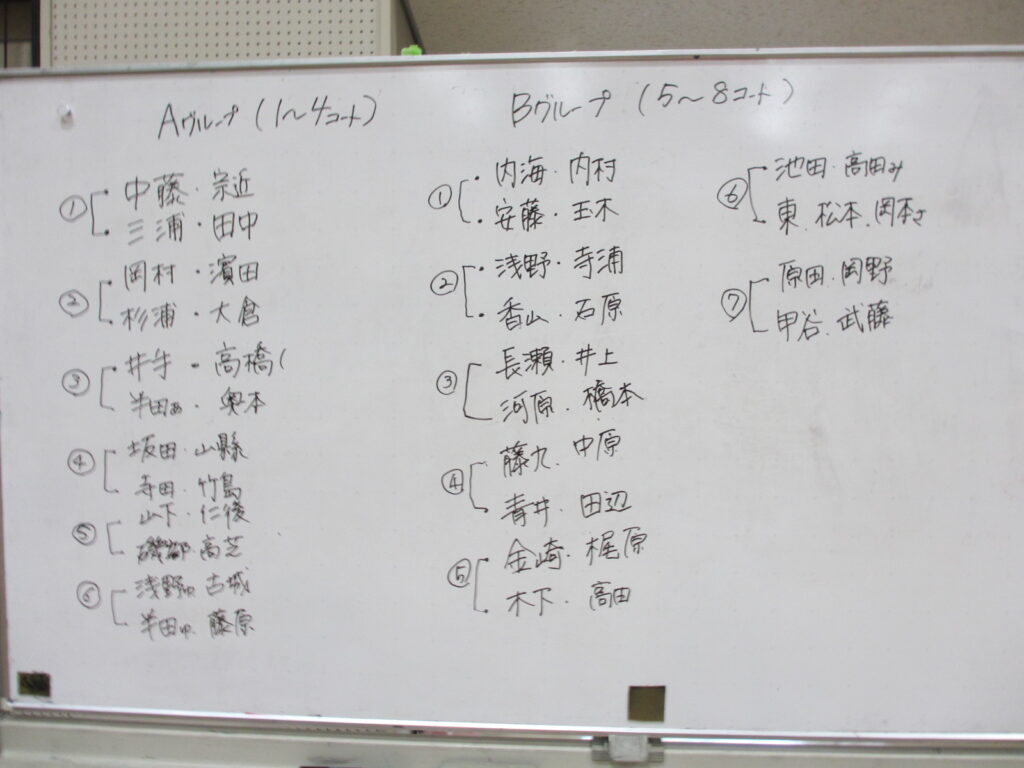 Aグループ (1〜4コート)
① ・中藤・宗近
・三浦・田中
② ・岡村・濱田
・杉浦・大倉
③ ・井手・高橋(
・半田あ・奥本
④ ・坂田・山縣
・寺田・竹島
⑤ ・山下・仁後
・磯部・高芝
⑥ ・浅野 古城
・半田ゆ 藤原
Bグループ (5〜8コート)
① ・内海・内村
・安藤・玉木
② ・浅野・寺浦
・香山・石原
③ 長瀬・井上
河原・橋本
④ 藤九・中原
・青井・田辺
⑤ ・金崎・梶原
・木下・高田
⑥ ・池田・高田み
・東・松本・岡本さ
⑦ 原田・岡野
甲谷・武藤